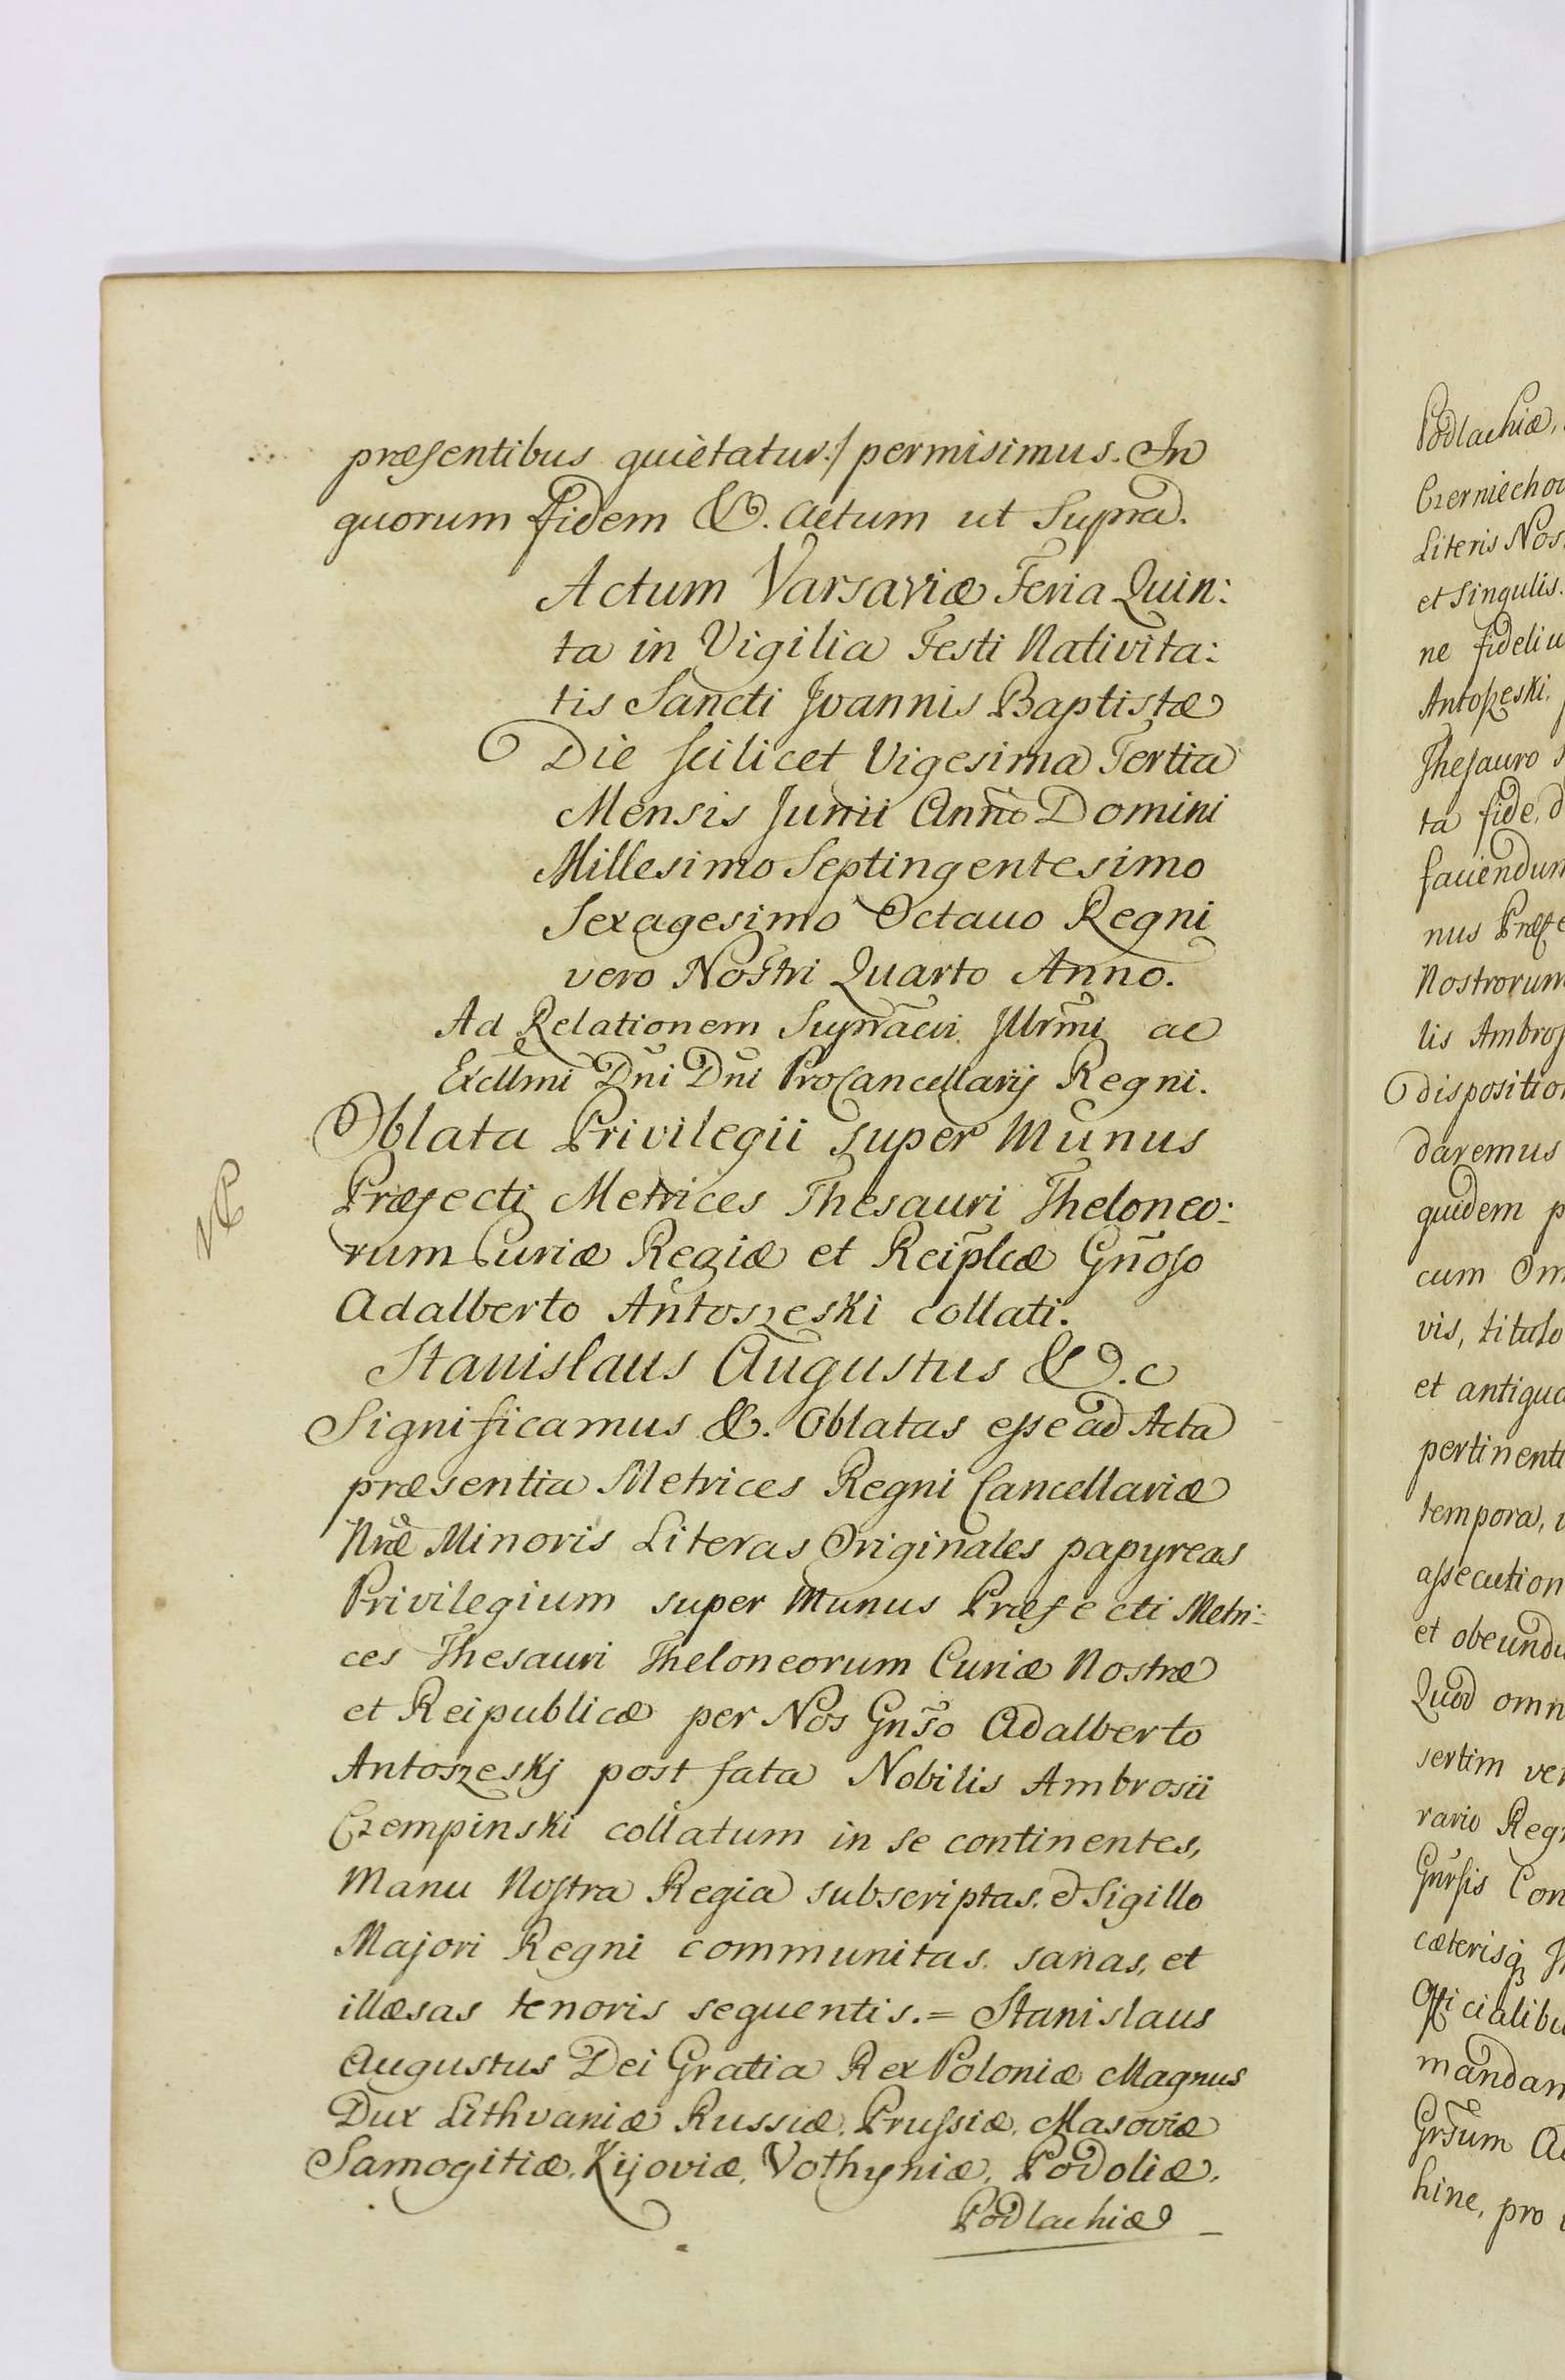 præsentibus quietatur:/ permisimus. In
quorum fidem &. actum ut Supra.
Actum Varsaviæ Feria Quin:
ta in Vigilia Festi Nativita:
tis Sancti Joannis Baptistæ
Die scilicet Vigesima Tertia
Mensis Junii Anno Domini
Millesimo Septingentesimo
Sexagesimo Octavo Regni
vero Nostri Quarto Anno.
Ad Relationem Illrm̃i ac
Excllm̃i Dñi Dñi ProCancellarij Regni.
Oblata Privilegii super Munus
Præfecti Metrices Thesauri Theloneo:
rum Curiæ Regiæ et Reiplcæ Gñoso
Adalberto Antoszeski collati.
Stanislaus Augustus &.c
Significamus &. Oblatas esse ad Acta
præsentia Metrices Regni Cancellariæ
Nræ Minoris Literas Originales papyreas
Privilegium super Munus Præfecti Metri:
ces Thesauri Theloneorum Curiæ Nostræ
et Reipublicæ per Nos Gnso Adalberto
Antoszeskj post fata Nobilis Ambrosii
Czempinski collatum in se continentes,
Manu Nostra Regia subscriptas. et Sigillo
Majori Regni communitas. sanas, et
illæsas tenoris sequentis.= Stanislaus
Augustus Dei Gratia Rex Poloniæ Magnus
Dux Lithvaniæ Russiæ, Prussiæ, Masoviæ
Samogitiæ, Kijoviæ, Volhyniæ, Podoliæ,
Podlachiæ
Podlachiæ,
Czerniechov
Literis Nos
et Singulis.
ne fideliu
Antoszeski.
Thesauro s
ta fide, d
faciendum
nus Præfe
Nostrorum
lis Ambros
dispositio
daremus
quidem p
cum Om
vis, titulo
et antiqua
pertinenti
tempora,
assecution
et obeundu
Quod omn
sertim ve
rario Reg
Gnrsis Con
cæterisq
Officialibu
mandam
Grsum A
hinc, pro